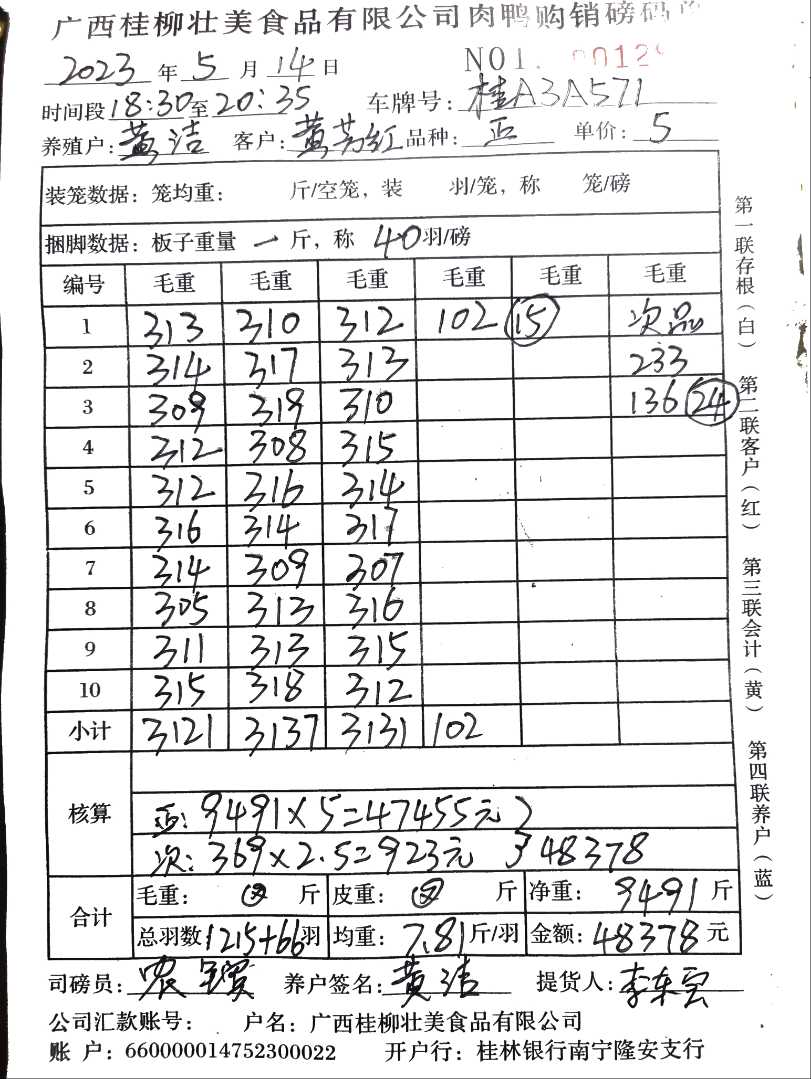 广西桂柳壮美食品有限公司肉鸭购销磅码单
2023 年 5 月 14 日 NO1. 00129
时间段 18:30 至 20:35 车牌号: 桂A3A571
养殖户: 黄洁 客户: 黄芳红 品种: 正 单价: 5
装笼数据: 笼均重: 斤/空笼, 装 羽/笼, 称 笼/磅
捆脚数据: 板子重量 一 斤, 称 40 羽/磅
编号 毛重 毛重 毛重 毛重 毛重 毛重
1 313 310 312 102 15 次品
2 314 317 313 233
3 309 319 310 136 24
4 312 308 315
5 312 316 314
6 316 314 317
7 314 309 307
8 305 313 316
9 311 313 315
10 315 318 312
小计 3121 3137 3131 102
核算
正: 9491×5=47455元
次: 369×2.5=923元 } 48378
合计 毛重: 斤 皮重: 斤 净重: 9491 斤
总羽数 1215+66 羽 均重: 7.81 斤/羽 金额: 48378 元
司磅员: 农 养户签名: 黄洁 提货人: 李东
公司汇款账号: 户名: 广西桂柳壮美食品有限公司
账 户: 660000014752300022 开户行: 桂林银行南宁隆安支行
第一联存根(白) 第二联客户(红) 第三联会计(黄) 第四联养户(蓝)